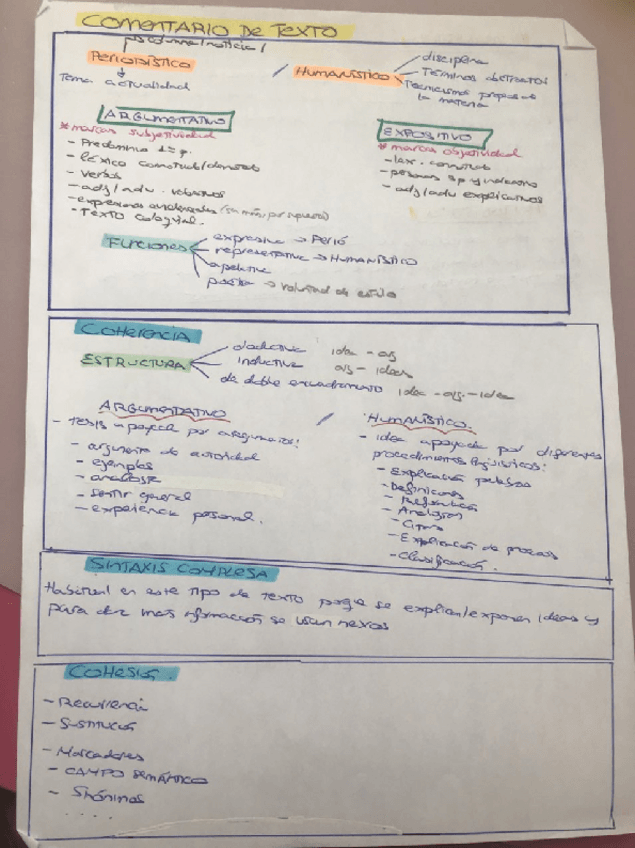 COMENTARIO DE TEXTO
periodismo/noticia/
PERIODÍSTICO / HUMANÍSTICO
disciplina
Términos abstractos
Tecnicismos propios de
la materia
Tema actualidad
ARGUMENTATIVO
* marcas subjetividad
- Predominio 1ª p.
- léxico connotado/
- verbos
- adj/adv. valorativos
- expresiones
- Texto coloquial.
EXPOSITIVO
* marcas objetividad
- lex.
- personas 3p y indicativo
- adj/adv explicativos
Funciones
expresiva → Perió
representativa → HUMANÍSTICO
apelativa
poética → voluntad de estilo
COHERENCIA
ESTRUCTURA
deductiva idea - arg
inductiva arg - ideas
de doble encuadramiento idea - arg. - idea
ARGUMENTATIVO
- Tesis apoyada por argumentos:
- argumento de autoridad
- ejemplos
- analogía
- sentir general
- experiencia personal.
/
HUMANÍSTICO.
- idea apoyada por diferentes
procedimientos lingüísticos:
- Explicación
- Definiciones
- Analogías
- Citas
- Explicación de procesos
- Clasificación.
SINTAXIS COMPLEJA
Habitual en este tipo de texto porque se explican/exponen ideas y
para dar más información se usan nexos
COHESIÓN.
- Recurrencia
- Sustitución
- Marcadores
- CAMPO SEMÁNTICO
- Sinónimos
. . . . .